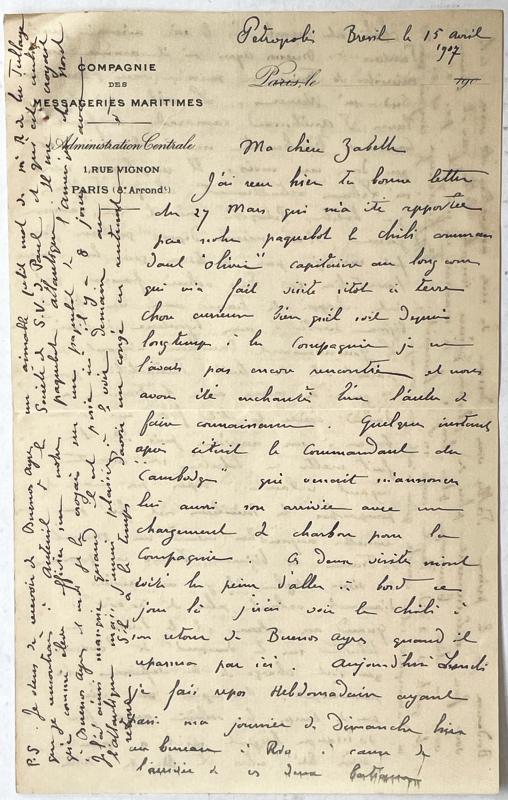 Petropolis Bresil le 15 avril
1907
COMPAGNIE
DES
MESSAGERIES MARITIMES
Administration Centrale
1, RUE VIGNON
PARIS (8e Arrondt)
Paris, le 190
Ma chère Zabelle
J'ai reçu hier ta bonne lettre
du 27 Mars qui m'a été apportée
par notre paquebot le Chili comman
dant "Olivier" capitaine au long cours
qui m'a fait visite sitôt à terre
chose curieuse bien qu'il soit depuis
longtemps à la Compagnie je ne
l'avais pas encore rencontré et nous
avons été enchantés l'un l'autre de
faire connaissance. Quelques instants
après c'était le Commandant du
"Cambodge" qui venait m'annoncer
lui aussi son arrivée avec un
chargement de charbon pour la
Compagnie. Ces deux visites m'ont
évité la peine d'aller à bord ce
jour là j'irai voir le Chili à
son retour de Buenos Ayres quand il
repassera par ici. Aujourd'hui Lundi
je fais repos Hebdomadaire ayant
ma journée de Dimanche hier
au bureau à Rio à cause de
l'arrivée de ces deux
P.S. Je viens de recevoir de Buenos Ayres
un aimable petit mot de
que je rencontrais à Auteuil à la Société de S.V. de Paul et qui est
comme officier sur notre paquebot atlantique
à Buenos Ayres
quand il est passé ici il y a 8 jours
plaisir à voir demain
s'il a le temps
retour